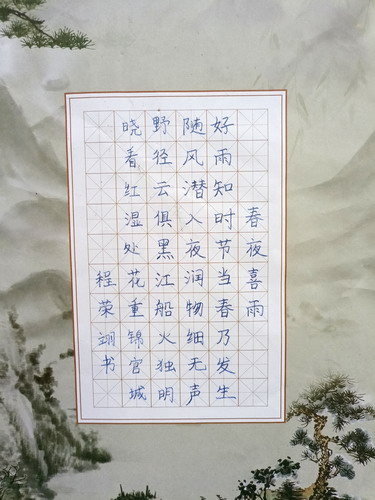 春夜喜雨
好雨知时节当春乃发生
随风潜入夜润物细无声
野径云俱黑江船火独明
晓看红湿处花重锦官城
程荣翊书